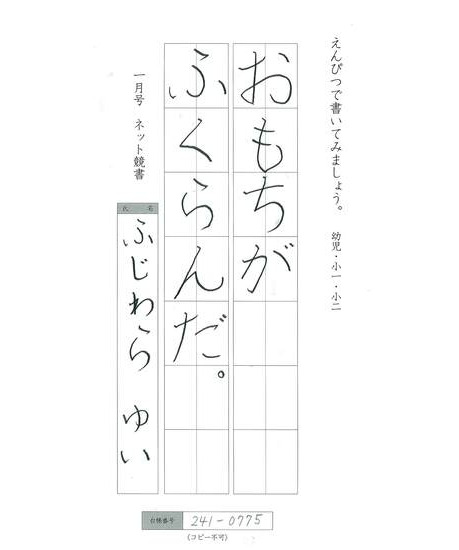 えんぴつで書いてみましょう。 幼児・小一・小二
おもちが
ふくらんだ。
一月号 ネット競書
氏名
ふじわら ゆい
会員番号 241-0775
(コピー不可)